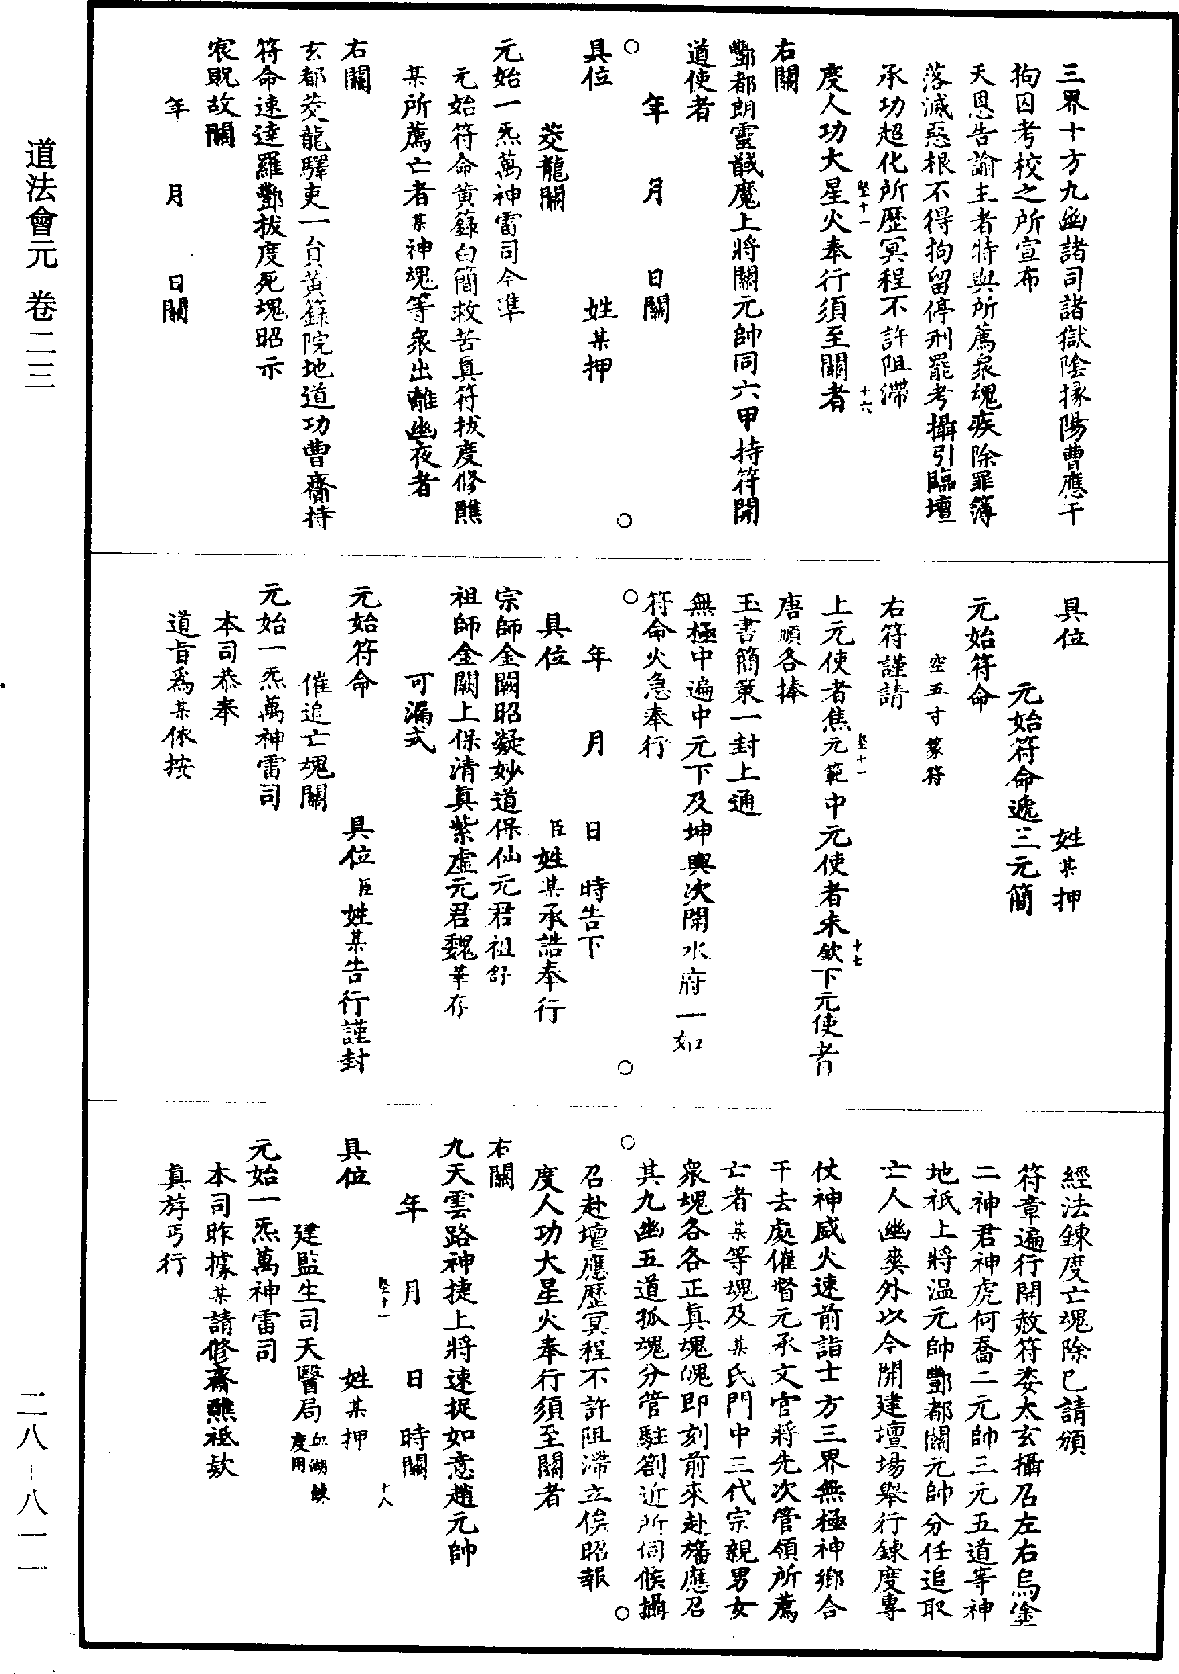 三界十方九幽諸司諸獄陰掾陽曹應干
拘囚考校之所宣布
天恩告諭主者特與所薦衆魂疾除罪簿
落滅惡根不得拘留停刑罷考攝引臨壇
承功超化所歷冥程不許阻滯
度人功大星火奉行須至關者
右關
酆都朗靈馘魔上將關元帥同六甲持符開
道使者
年　月　日關
具位　姓某押
茭龍關
元始一炁萬神雷司今準
元始符命黃籙白簡救苦真符拔度修醮
某所薦亡者某神魂等衆出離幽夜者
右關
玄都茭龍驛吏一員黃籙院地道功曹齎持
符命速達羅酆拔度死魂昭示
寔貺故關
年　月　日關
具位　姓某押
元始符命遞三元簡
元始符命
空五寸篆符
右符謹請
上元使者焦元範中元使者朱欽下元使者
唐順各捧
玉書簡策一封上通
無極中遍中元下及坤輿次開水府一如
符命火急奉行
年　月　日　時告下
具位　臣姓某承誥奉行
宗師金闕昭凝妙道保仙元君祖舒
祖師金闕上保清真紫虛元君魏華存
可漏式
元始符命　具位臣姓某告行謹封
催追亡魂關
元始一炁萬神雷司
本司恭奉
道旨爲某依按
經法鍊度亡魂除已請頒
符章遍行開赦符委太玄攝召左右烏塗
二神君神虎何喬二元帥三元五道等神
地祇上將溫元帥酆都關元帥分任追取
亡人幽爽外以今開建壇場舉行鍊度專
仗神威火速前詣十方三界無極神鄉合
干去處催督元承文官將先次管領所薦
亡者某等魂及某氏門中三代宗親男女
衆魂各各正真魂魄即刻前來赴旛應召
其九幽五道孤魂分管駐劄近所伺候攝
召赴壇應歷冥程不許阻滯立俟昭報
度人功大星火奉行須至關者
右關
九天雲路神捷上將速捉如意趙元帥
年　月　日　時關
具位　姓某押
建監生司天醫局血湖鍊度用
元始一炁萬神雷司
本司昨據某請修齋醮祗欵
真斿丐行
竪十一
十六
竪十一
十七
竪十一
十八
道法會元　卷二三
二八—八一一